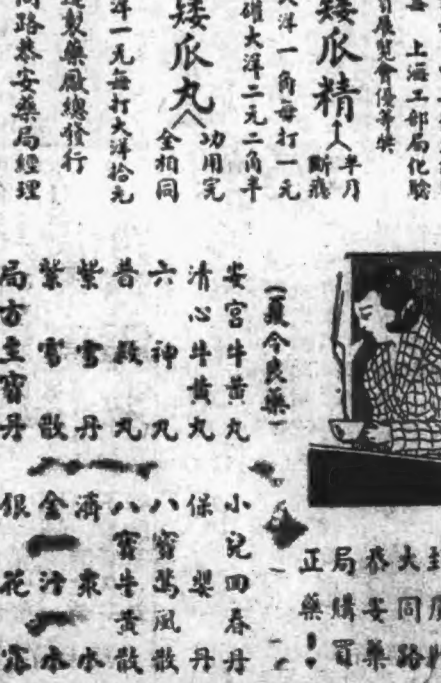 上海工部局化驗
展覽會優等獎
矮瓜精
半月
斷癮
大洋一角每打一元
大洋二元二角半
矮瓜丸
功用完
全相同
洋一元每打大洋拾元
製藥廠總發行
同路恭安藥局經理
大同路
恭安藥
局購買
正藥!
(夏令良藥)
安宮牛黃丸
清心牛黃丸
六神丸
普救丸
紫雪丹
紫雪散
局方至寶丹
小兒回春丹
保嬰丹
八寶驚風散
八寶牛黃散
濟衆水
金汁水
銀花露